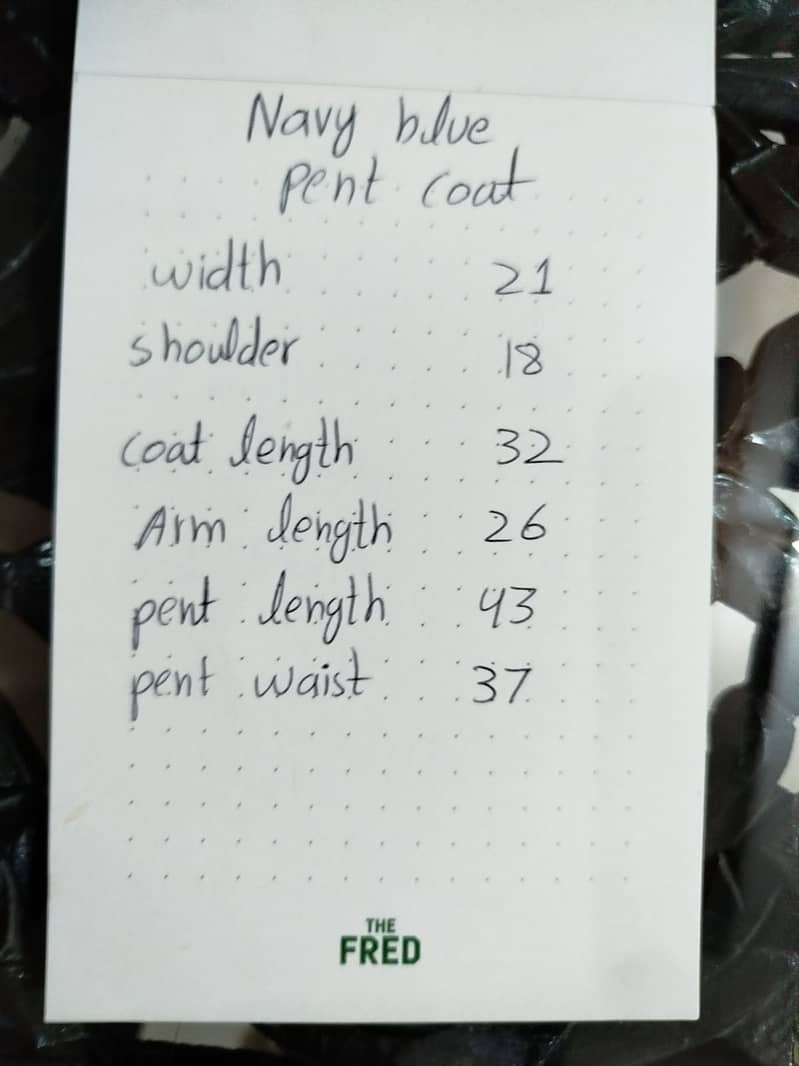 Navy blue
pent coat
width 21
shoulder 18
coat length 32
Arm length 26
pent length 43
pent waist 37
THE
FRED